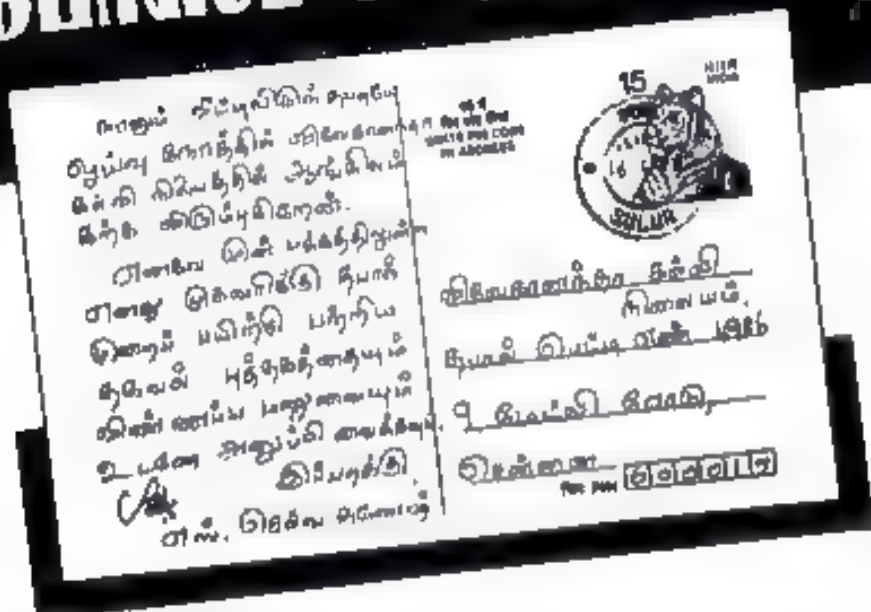 நானும்
ஓய்வு நேரத்தில் விவேகானந்தா
கல்வி நிலையத்தில் ஆங்கிலம்
கற்க விரும்புகிறேன்.
எனவே முன் பக்கத்திலுள்ள
எனது முகவரிக்கு தபால்
முறைப் பயிற்சி பற்றிய
தகவல் புத்தகத்தையும்
விண்ணப்ப மனுவையும்
உடனே அனுப்பி வைக்கவும்.
இப்படிக்கு,
எஸ்.
15
INDIA
WRITE PIN CODE
IN ADDRESS
16
SULUR
விவேகானந்தா கல்வி
நிலையம்,
தபால் பெட்டி எண் 1986
சென்னை
PIN 600017